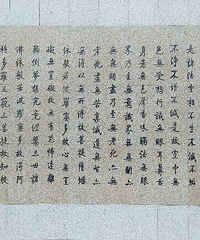 是諸法空相不生不滅不垢
不淨不增不減是故空中無
色無受想行識無眼耳鼻舌
身意無色聲香味觸法無眼
界乃至無意識界無無明亦
無無明盡乃至無老死亦無
老死盡無苦集滅道無智亦
無得以無所得故菩提薩埵
依般若波羅蜜多故心無罣
礙無罣礙故無有恐怖遠離
顛倒夢想究竟涅槃三世諸
佛依般若波羅蜜多故得阿
耨多羅三藐三菩提故知般